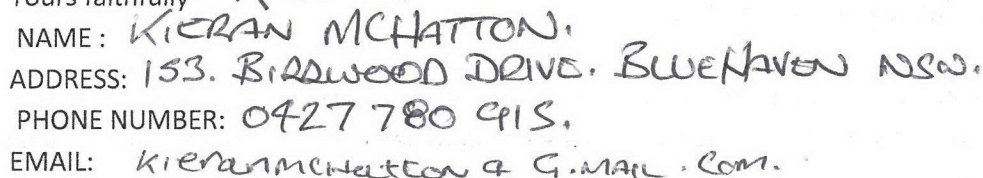 Yours faithfully
NAME: KIERAN MCHATTON.
ADDRESS: 153. BIRDWOOD DRIVE. BLUEHAVEN NSW.
PHONE NUMBER: 0427 780 915.
EMAIL: KieranMCHatton @ G.MAIL.Com.